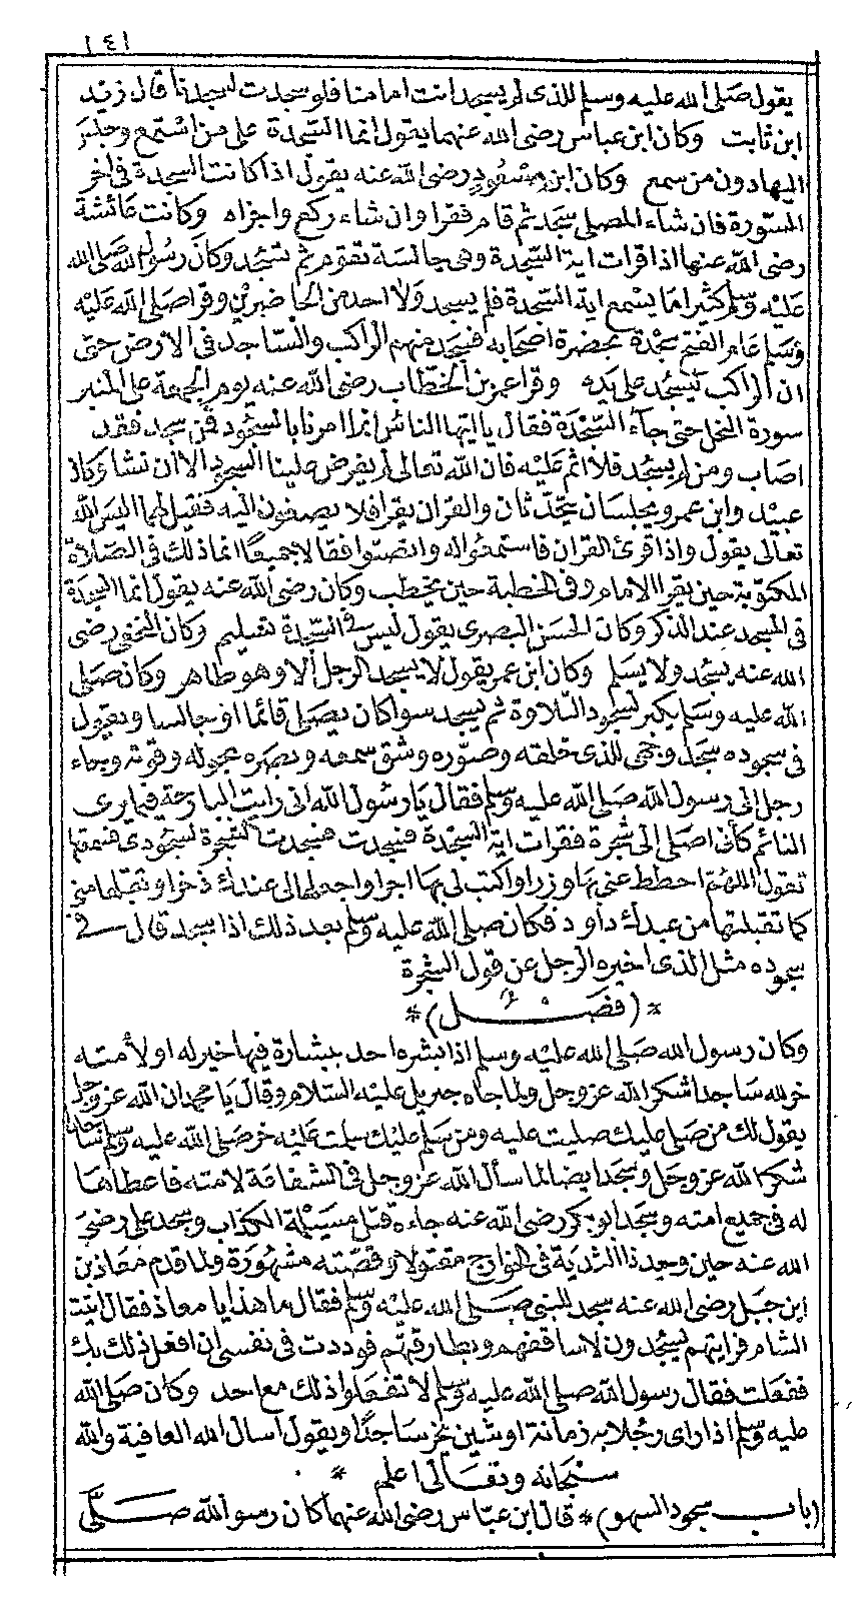 ١٤١
يقول صلى الله عليه وسلم للذى لم يسجد انت امامنا فلو سجدت لسجدنا قال زيد
ابن ثابت وكان ابن عباس رضى الله عنهما يقول انما السجدة على من استمع وجلس
اليها دون من سمع وكان ابن مسعود رضى الله عنه يقول اذا كانت السجدة فى اخر
السورة فان شاء المصلى سجد ثم قام فقرا وان شاء ركع واجزاه وكانت عائشة
رضى الله عنها اذا قرات اية السجدة وهى جالسة تقوم ثم تسجد وكان رسول الله صلى الله
عليه وسلم كثيرا ما يسمع اية السجدة فلم يسجد ولا احد من الحاضرين وقرا صلى الله عليه
وسلم عام الفتح سجدة بحضرة اصحابه فسجد منهم الراكب والساجد فى الارض حتى
ان الراكب ليسجد على يده وقرا عمر بن الخطاب رضى الله عنه يوم الجمعة على المنبر
سورة النحل حتى جاء السجدة فقال يا ايها الناس انما امرنا بالسجود فمن سجد فقد
اصاب ومن لم يسجد فلا اثم عليه فان الله تعالى لم يفرض علينا السجود الا ان نشا وكان
عبيد وابن عمرو يجلسان يتحدثان والقران يقرا فلا يصغون اليه فقيل لهما اليس الله
تعالى يقول واذا قرئ القران فاستمعوا له وانصتوا فقالا جميعا انما ذلك فى الصلاة
المكتوبة حين يقرا الامام وفى الخطبة حين يخطب وكان رضى الله عنه يقول انما السجدة
فى المسجد عند الذكر وكان الحسن البصرى يقول ليس فى السجدة تسليم وكان النخعى رضى
الله عنه يسجد ولا يسلم وكان ابن عمر يقول لا يسجد الرجل الا وهو طاهر وكان صلى
الله عليه وسلم يكبر لسجود التلاوة ثم يسجد سوا كان يصلى قائما او جالسا ويقول
فى سجوده سجد وجهى للذى خلقه وصوره وشق سمعه وبصره بحوله وقوته وجاء
رجل الى رسول الله صلى الله عليه وسلم فقال يا رسول الله انى رايت البارحة فيما يرى
النائم كانى اصلى الى شجرة فقرات اية السجدة فسجدت فسجدت الشجرة لسجودى فسمعتها
تقول اللهم احطط عنى بها وزرا واكتب لى بها اجرا واجعلها لى عندك ذخرا وتقبلها منى
كما تقبلتها من عبدك داود فكان صلى الله عليه وسلم بعد ذلك اذا سجد قال فى
سجوده مثل الذى اخبره الرجل عن قول الشجرة
* (فصل) *
وكان رسول الله صلى الله عليه وسلم اذا بشره احد ببشارة فيها خير له او لأمته
خر لله ساجدا شكرا لله عز وجل ولما جاه جبريل عليه السلام وقال يا محمد ان الله عز وجل
يقول لك من صلى عليك صليت عليه ومن سلم عليك سلمت عليه خر صلى الله عليه وسلم ساجدا
شكرا لله عز وجل وسجد ايضا لما سأل الله عز وجل فى الشفاعة لامته فاعطاها
له فى جميع امته وسجد ابو بكر رضى الله عنه جاءه قتل مسيلمة الكذاب وسجد على رضى
الله عنه حين وجد ذا الثدية فى الخوارج مقتولا وقصته مشهورة ولما قدم معاذ بن
ابن جبل رضى الله عنه سجد للنبى صلى الله عليه وسلم فقال ما هذا يا معاذ فقال اتيت
الشام فرايتهم يسجدون لاساقفهم وبطارقتهم فوددت فى نفسى ان افعل ذلك بك
ففعلت فقال رسول الله صلى الله عليه وسلم لا تفعلوا ذلك مع احد وكان صلى الله
عليه وسلم اذا راى رجلا به زمانة او شين يخر ساجدا ويقول اسال الله العافية والله
سبحانه وتعالى اعلم *
(باب سجود السهو) * قال ابن عباس رضى الله عنهما كان رسو الله صلى